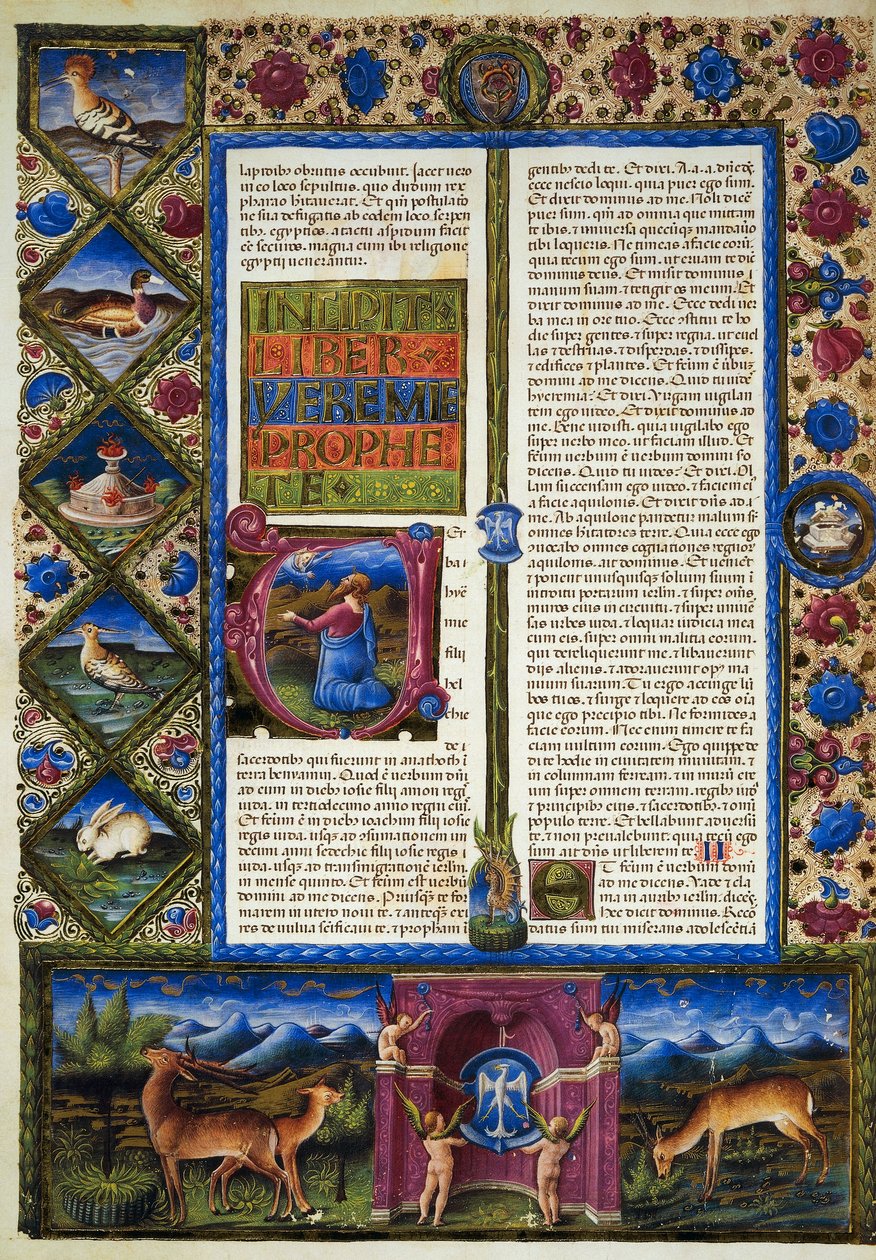 lapidibus obrutus occubuit. Iacet uero
in eo loco sepultus. quo dudum rex
pharao habitauerat. Et qm̄ postulatio
ne sua defugatis ab eodem loco serpen
tibꝫ egyptios. a tactu aspidum facit
eē securos. magna eum ibi religione
egyptii uenerantur.
INCIPIT
LIBER
YEREMIE
PROPHE
TE
Et
ba
hye
mie
filii
hel
chie
de
sacerdotibꝫ qui fuerunt in anathoth ī
terra benyamin. Quod ē uerbum dn̄i
ad eum in diebꝫ iosie filii amon regis
iuda. in tertiodecimo anno regni eiꝰ.
Et fc̄m ē in diebꝫ ioachim filii iosie
regis iuda. usqꝫ ad ↄsumationem un
decimi anni sedechie filii iosie regis
iuda. usqꝫ ad transmigrationē ierl̄m.
in mense quinto. Et fc̄m est uerbū
domini ad me dicens. Priusqꝫ te for
marem in utero noui te. & anteqꝫ exi
res de uulua sc̄ificaui te. & prophetam ī
gentibꝫ dedi te. Et dixi. A.a.a. dn̄e dꝫ.
ecce nescio loqui. quia puer ego sum.
Et dixit dominus ad me. Noli dicere
puer sum. qm̄ ad omnia que mittam
te ibis. & uniuersa quecūqꝫ mandauero
tibi loqueris. Ne timeas a facie eorū.
quia tecum ego sum. ut eruam te dicit
dominus deus. Et misit dominus
manum suam. & tetigit os meum. Et
dixit dominus ad me. Ecce dedi uer
ba mea in ore tuo. Ecce ↄstitui te ho
die super gentes. & super regna. ut euel
las & destruas. & disperdas. & dissipes.
& edifices & plantes. Et fc̄m ē uerbum
domini ad me dicens. Quid tu uides
hyeremia? Et dixi. Virgam uigilan
tem ego uideo. Et dixit dominus ad
me. Bene uidisti. quia uigilabo ego
super uerbo meo. ut faciam illud. Et
fc̄m uerbum ē uerbum domini secundo
dicens. Quid tu uides? Et dixi. Ol
lam succensam ego uideo. & faciem eiꝰ
a facie aquilonis. Et dixit dn̄s ad
me. Ab aquilone pandetur malum sr̄
omnes habitatores terre. Quia ecce ego
ↄuocabo omnes cognationes regnorū
aquilonis. ait dominus. Et uenient
& ponent unusquisqꝫ solium suum ī
introitu portarum ierl̄m. & super om̄s
muros eius in circuitu. & super uniuer
sas urbes iuda. & loquar iudicia mea
cum eis. super omni malitia eorum.
qui dereliquerunt me. & libauerunt
diis alienis. & adorauerunt opꝰ ma
nuum suarum. Tu ergo accinge lū
bos tuos. & surge & loquere ad eos oīa
que ego precipio tibi. Ne formides a
facie eorum. Nec enim timere te fa
ciam uultum eorum. Ego quippe de
di te hodie in ciuitatem munitam. &
in columnam ferream. & in murū ere
um super omnem terram. regibꝫ iuda
& principibꝫ eius. & sacerdotibꝫ. & omi
populo terre. Et bellabunt aduersū
te. & non preualebunt. quia tecū ego
sum ait dn̄s ut liberem te. II
Et fc̄um ē uerbum domi
ad me dicens. Vade & cla
ma in auribꝫ ierl̄m. dicēs
Hec dicit dominus. Recor
datus sum tui miserans adolescentiā